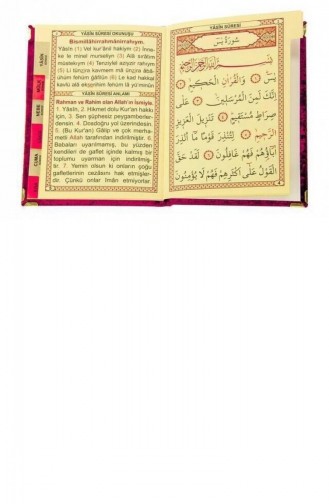 YÂSİN SÛRESİ OKUNUŞU
Bismillâhirrahmânirrahıym.
Yâsîn (1) Vel kur'ânil hakiym (2) İnne-
ke le minel murseliyn (3) Alâ sırâtim
müstekıym (4) Tenziylel aziyzir rahıym
(5) Li tünzira kavmem mâ ünzira âbâ-
ünüm fehüm ğâfilûn (6) Le kad hakkal
kavlü alâ ekserihim fehüm lâ yü'minûn
YÂSİN SÛRESİ ANLAMI
Rahman ve Rahim olan Allah'ın İsmiyle.
1. Yâsîn. 2. Hikmet dolu Kur'an hakkı
için. 3. Sen şüphesiz peygamberler-
densin. 4. Dosdoğru yol üzerindesin.
5. (Bu Kur'an) Gâlip ve çok merha-
metli Allah tarafından indirilmiştir. 6.
Babaları uyarılmamış, bu yüzden
kendileri de gaflet içinde kalmış bir
toplumu uyarman için indirilmiş-
tir. 7. Yemin olsun ki onların çoğu
gafletlerinin cezâsını hak etmişler-
dir. Çünkü onlar îman etmiyorlar.
YASİN
CUMA
YÂSİN SÛRESİ
سُورَةُ يٰسٓ
بِسْمِ اللّٰهِ الرَّحْمٰنِ الرَّحِيمِ
يٰسٓ ۞ وَالْقُرْاٰنِ الْحَكِيمِ ۞
اِنَّكَ لَمِنَ الْمُرْسَلِينَ ۞ عَلٰى
صِرَاطٍ مُسْتَقِيمٍ ۞ تَنْزِيلَ الْعَزِيزِ
الرَّحِيمِ ۞ لِتُنْذِرَ قَوْمًا مَٓا اُنْذِرَ
اٰبَٓاؤُهُمْ فَهُمْ غَافِلُونَ ۞ لَقَدْ حَقَّ
الْقَوْلُ عَلٰٓى اَكْثَرِهِمْ فَهُمْ لَا يُؤْمِنُونَ